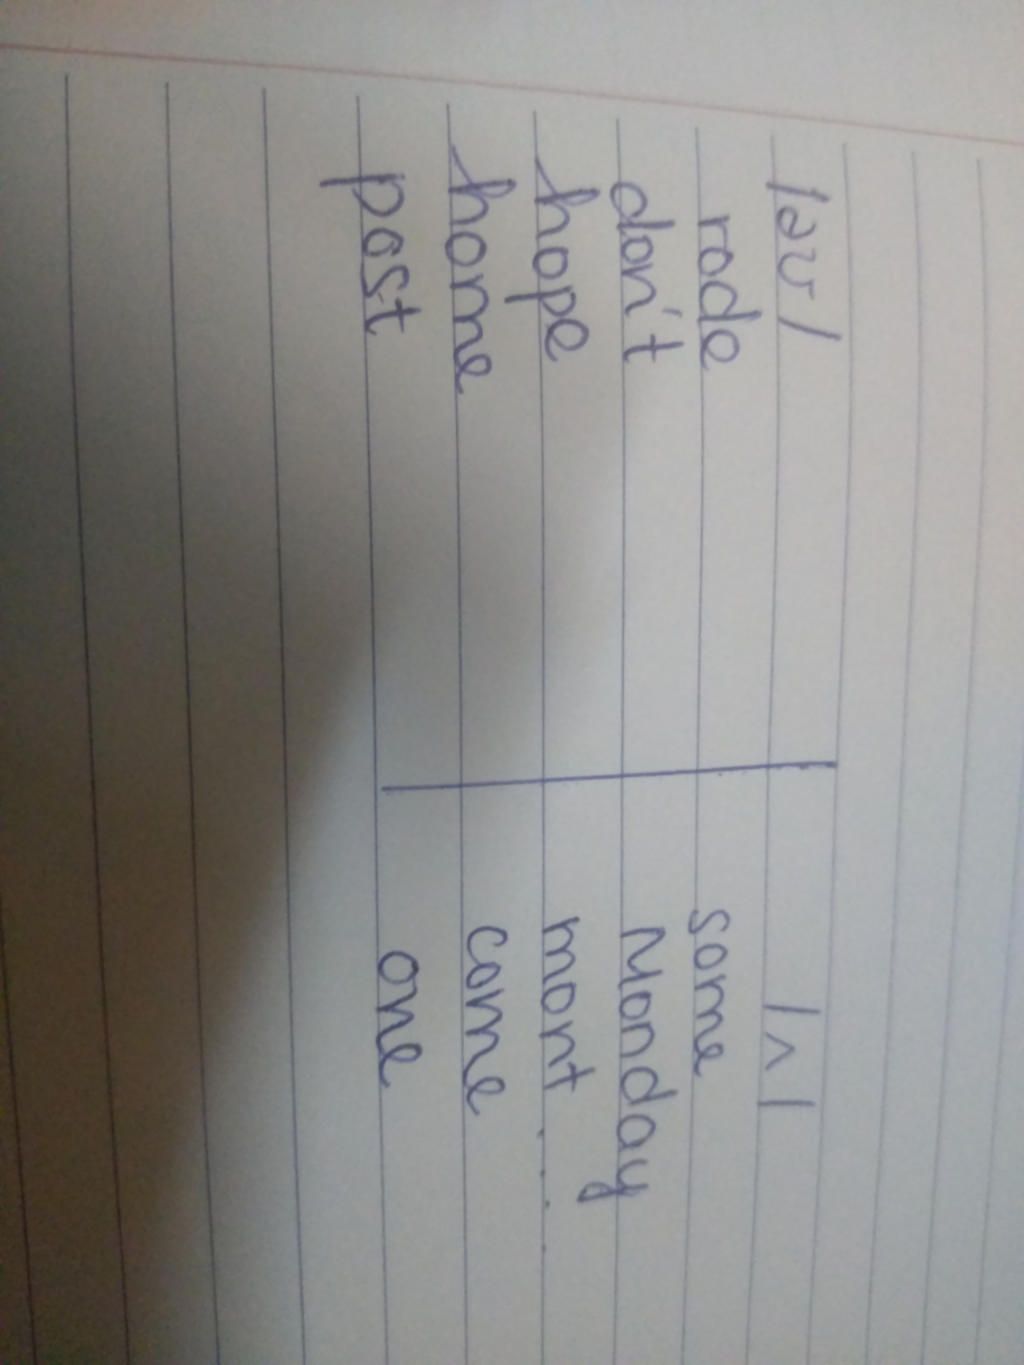 /əʊ/ /ʌ/
rode some
don't Monday
hope mont
home come
post one